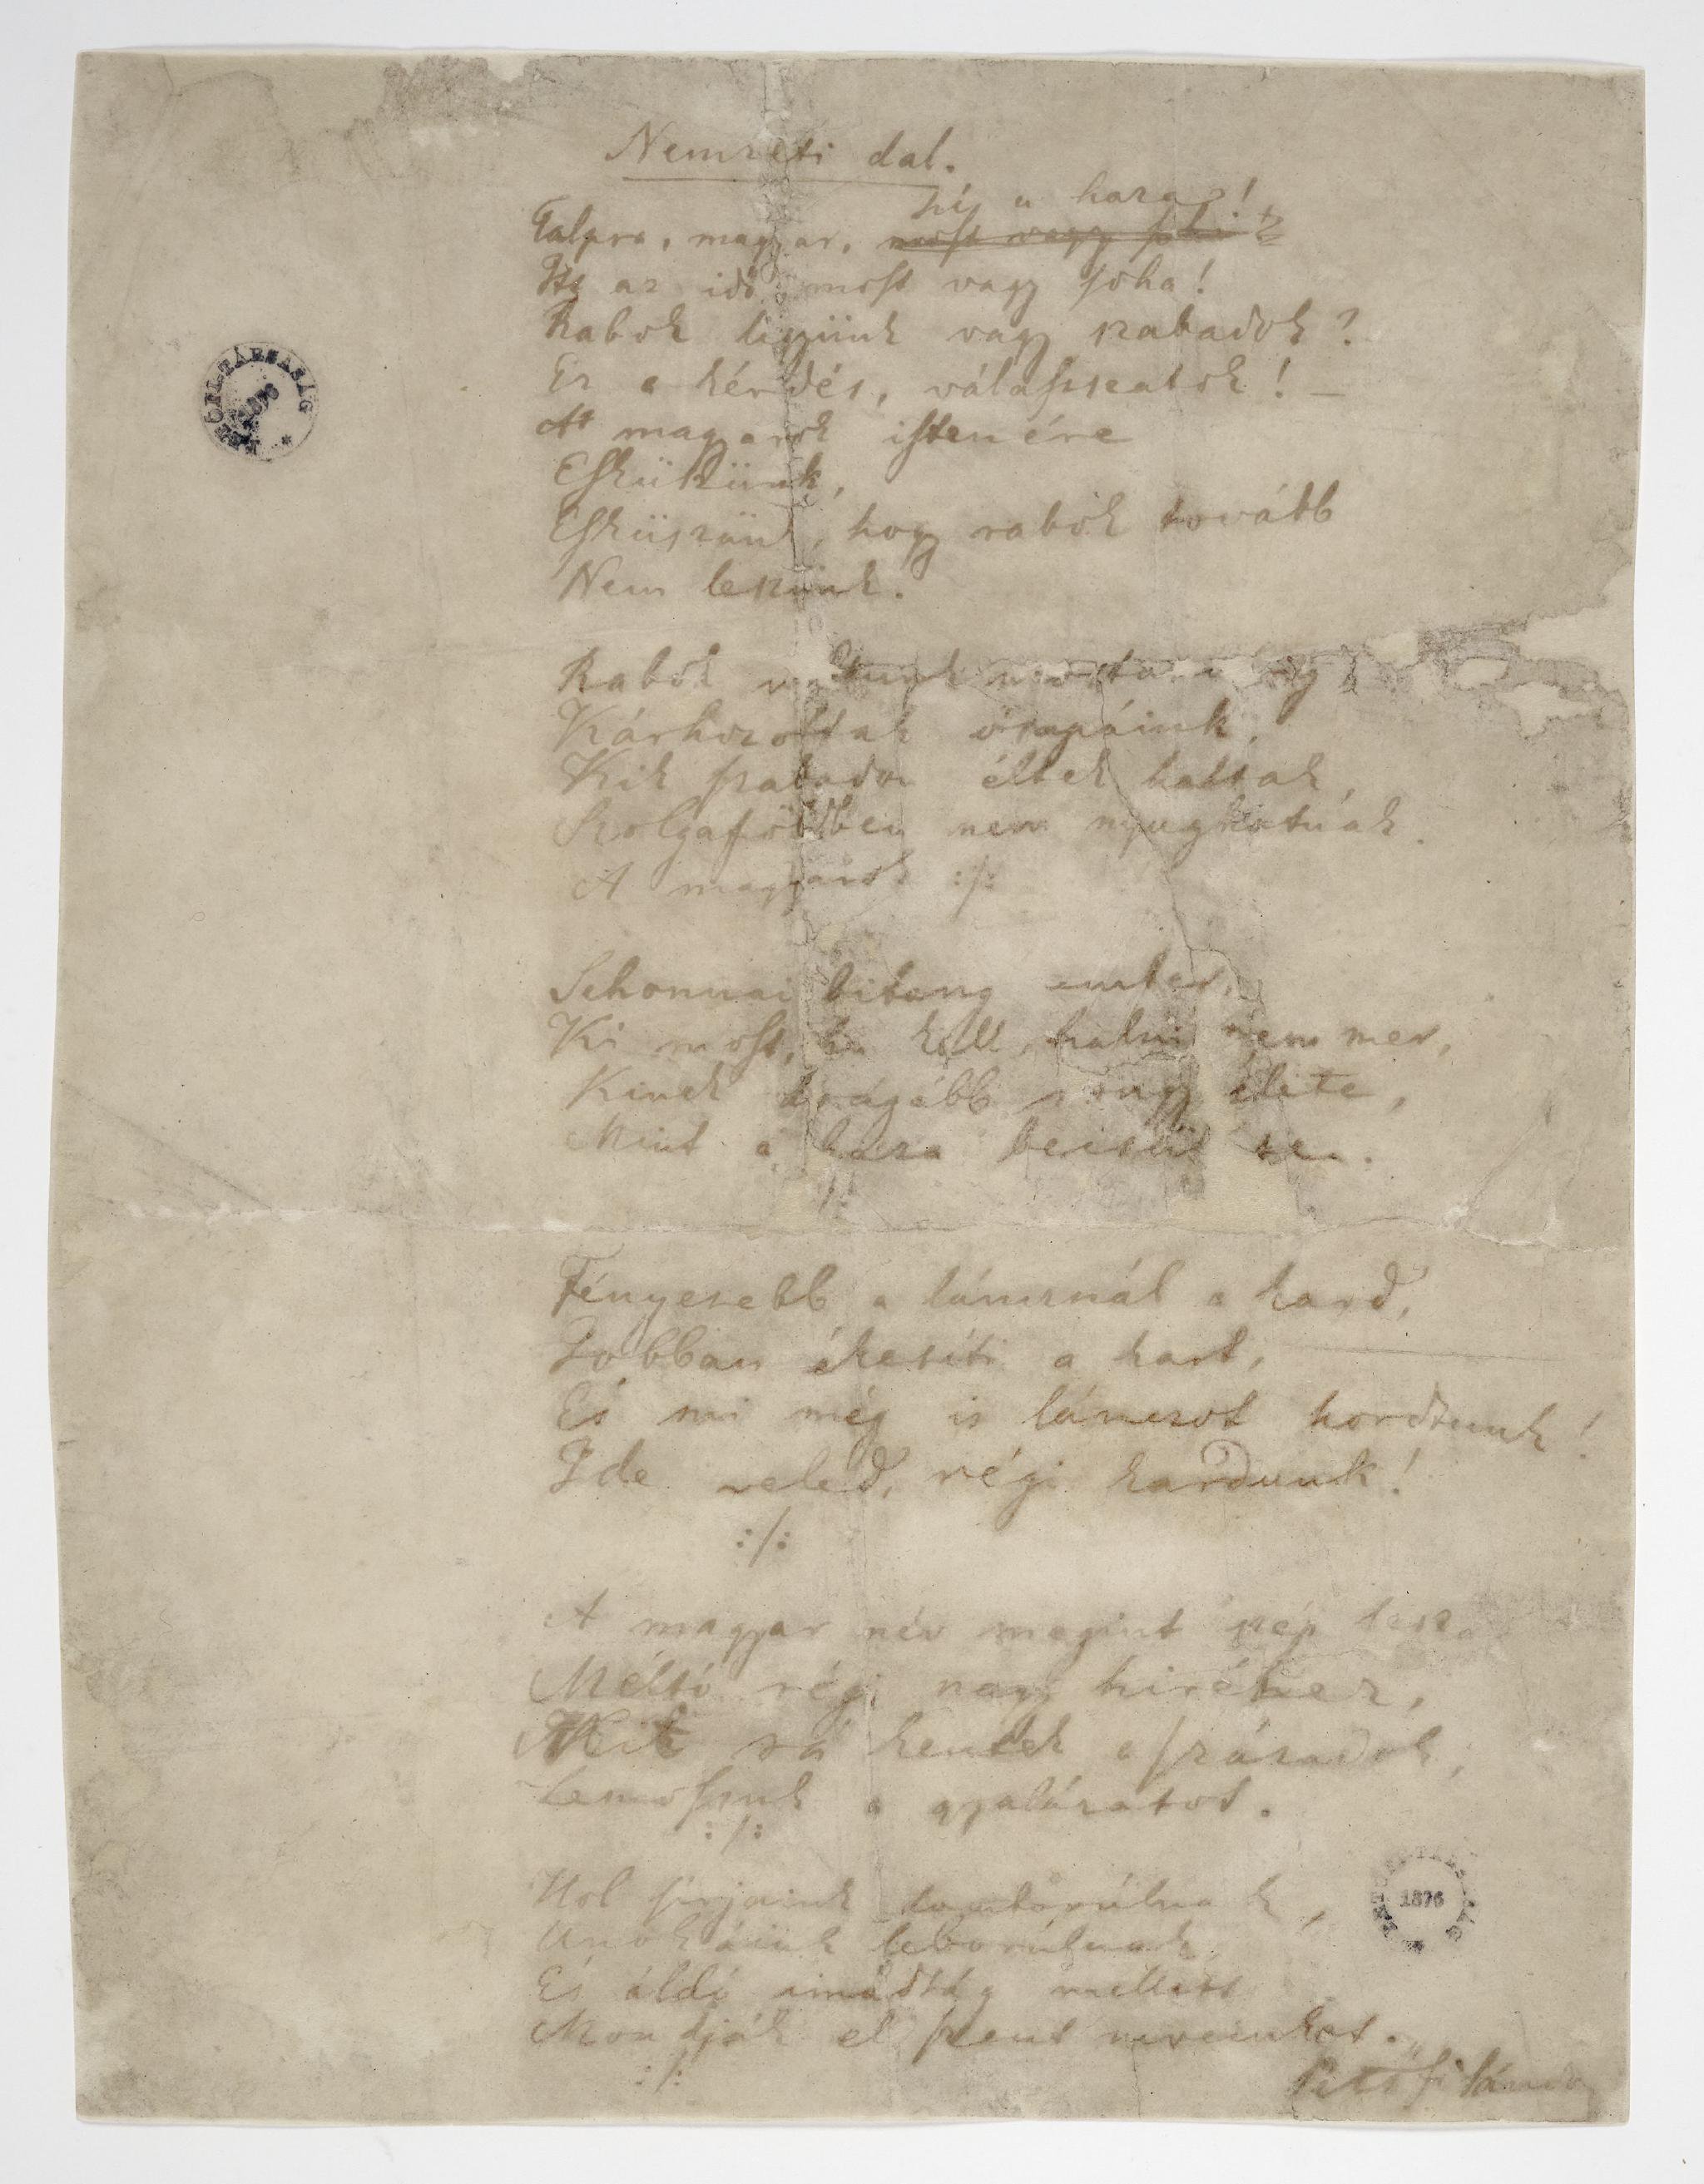 Nemzeti dal.
hí a haza!
Talpra, magyar, most vagy soha
Itt az idő, most vagy soha!
Rabok legyünk vagy szabadok?
Ez a kérdés, válasszatok! –
A magyarok istenére
Esküszünk,
Esküszünk, hogy rabok tovább
Nem leszünk.
Rabok voltunk mostanáig
Kárhozottak ősapáink,
Kik szabadon éltek haltak,
Szolgaföldben nem nyughatnak.
A magyarok :/:
Sehonnai bitang ember,
Ki most, ha kell, halni nem mer,
Kinek drágább rongy élete,
Mint a haza becsülete.
:/:
Fényesebb a láncznál a kard,
Jobban ékesíti a kart,
És mi még is lánczot hordtunk!
Ide veled, régi kardunk!
:/:
A magyar név megint szép lesz,
Méltó régi nagy hiréhez,
Mit rá kentek a századok,
Lemossuk a gyalázatot.
:/:
Hol sírjaink domborúlnak,
Unokáink leborúlnak,
És áldó imádság mellett
Mondják el szent neveinket.
:/:
Petőfi Sándor
PETŐFI-TÁRSASÁG
1876
PETŐFI TÁRSASÁG
1876